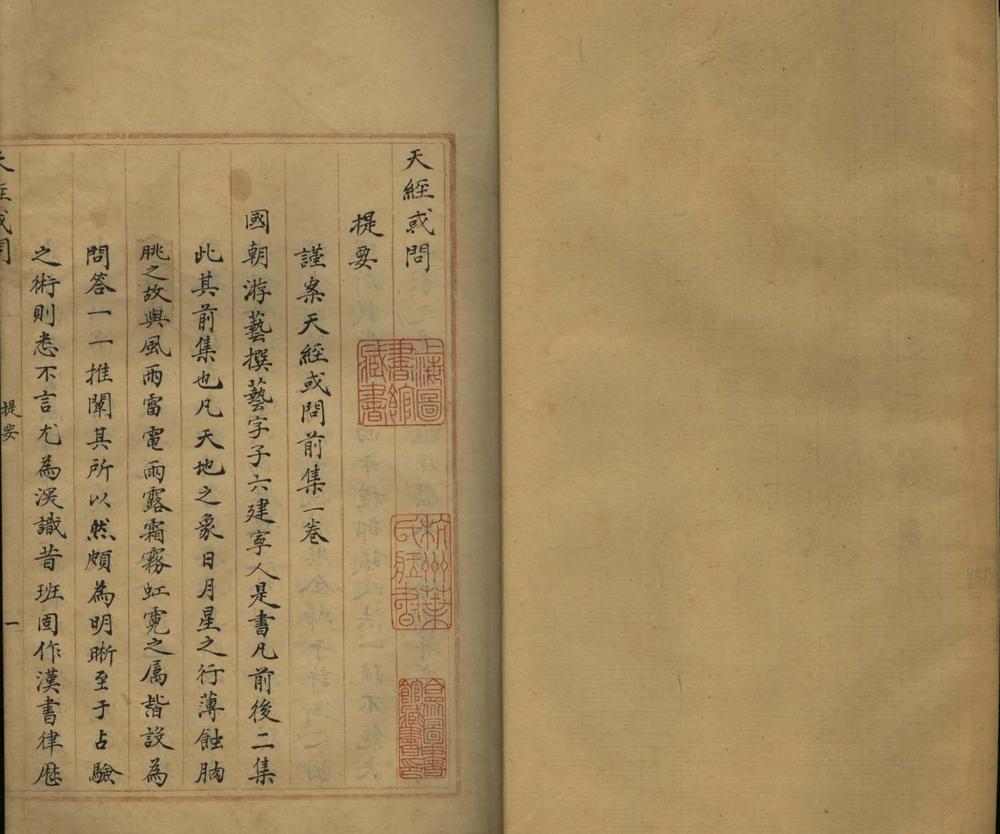 天經或問
提要
謹案天經或問前集一卷
國朝游藝撰藝字子六建寧人是書凡前後二集
此其前集也凡天地之象日月星之行薄蝕朒
朓之故與風雨雷電雨露霜霧虹霓之属皆設為
問答一一推闡其所以然頗為明晰至于占驗
之術則悉不言尤為深識昔班固作漢書律厯
天經或問
提要
一
上海圖書館藏書
杭州葉氏藏書
合眾圖書館藏書印